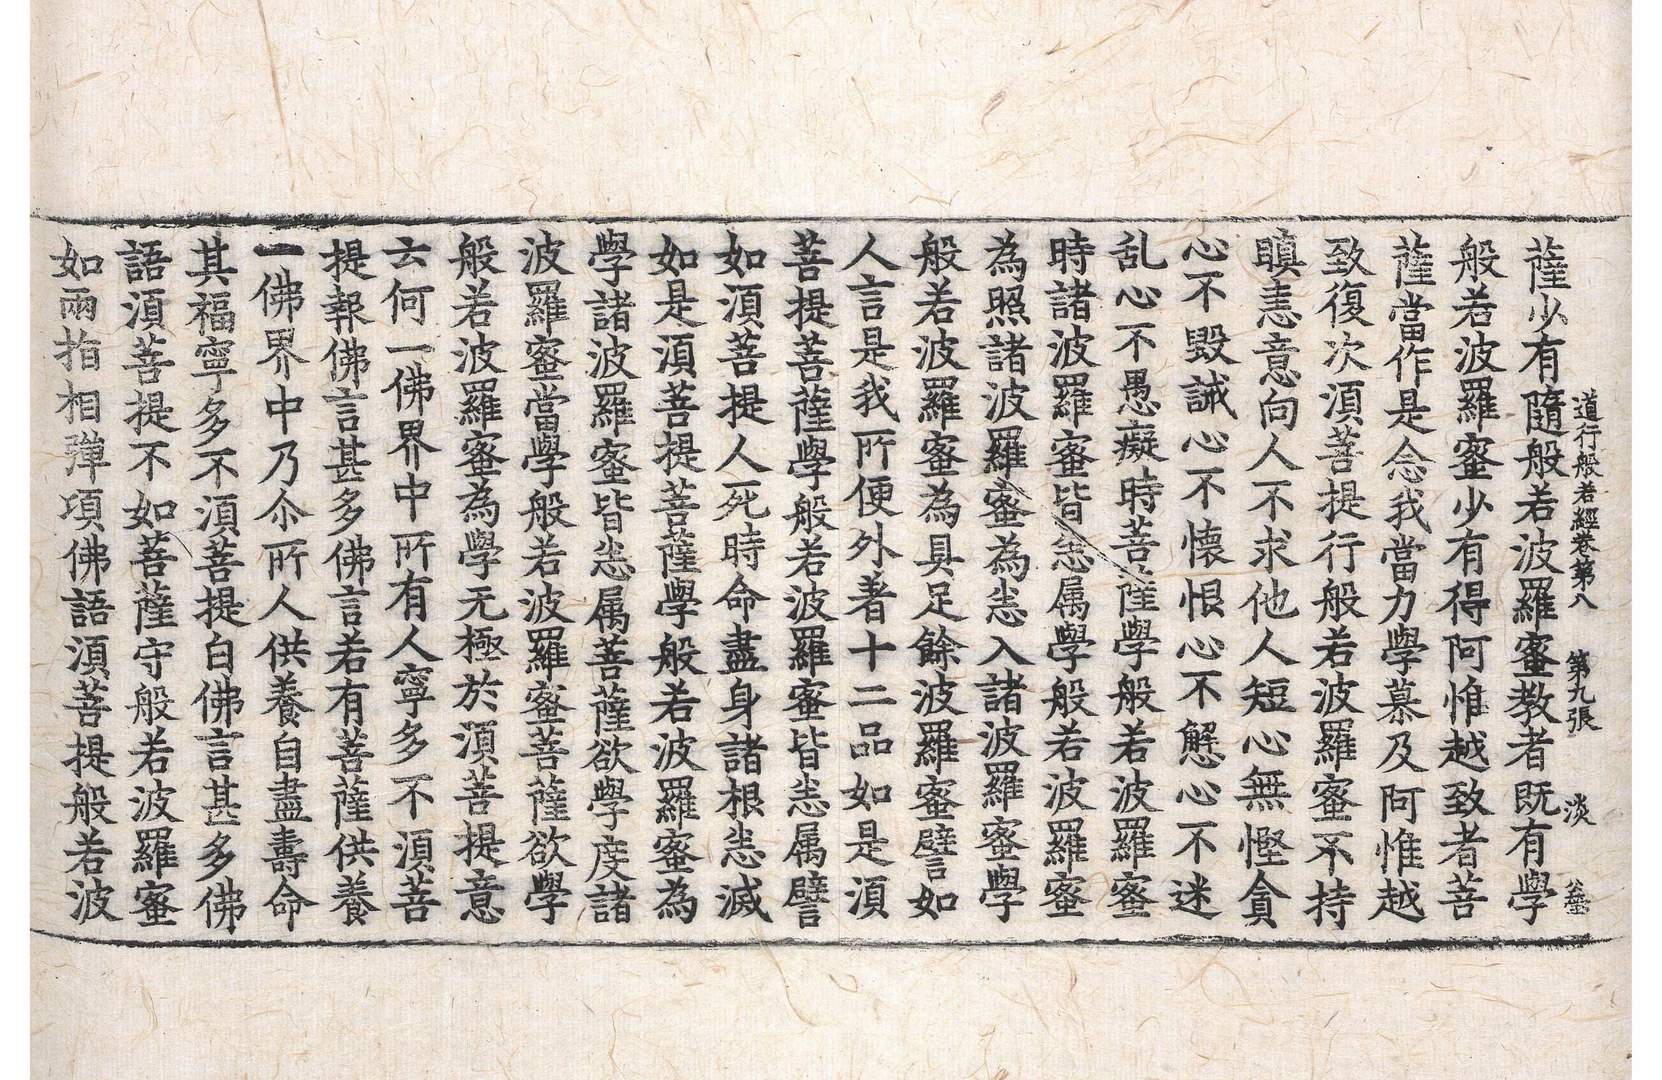 道行般若經卷第八 第九張 淡
薩少有隨般若波羅蜜教者既有學
般若波羅蜜少有得阿惟越致者菩
薩當作是念我當力學慕及阿惟越
致復次湏菩提行般若波羅蜜不持
瞋恚意向人不求他人短心無慳貪
心不毀誡心不懷恨心不懈心不迷
乱心不愚癡時菩薩學般若波羅蜜
時諸波羅蜜皆悉属學般若波羅蜜
為照諸波羅蜜為悉入諸波羅蜜學
般若波羅蜜為具足餘波羅蜜譬如
人言是我所便外著十二品如是湏
菩提菩薩學般若波羅蜜皆悉属譬
如湏菩提人死時命盡身諸根悉滅
如是湏菩提菩薩學般若波羅蜜為
學諸波羅蜜皆悉属菩薩欲學度諸
波羅蜜當學般若波羅蜜菩薩欲學
般若波羅蜜為學无極於湏菩提意
云何一佛界中所有人寧多不湏菩
提報佛言甚多佛言若有菩薩供養
一佛界中乃尒所人供養自盡壽命
其福寧多不湏菩提白佛言甚多佛
語湏菩提不如菩薩守般若波羅蜜
如兩指相彈項佛語湏菩提般若波